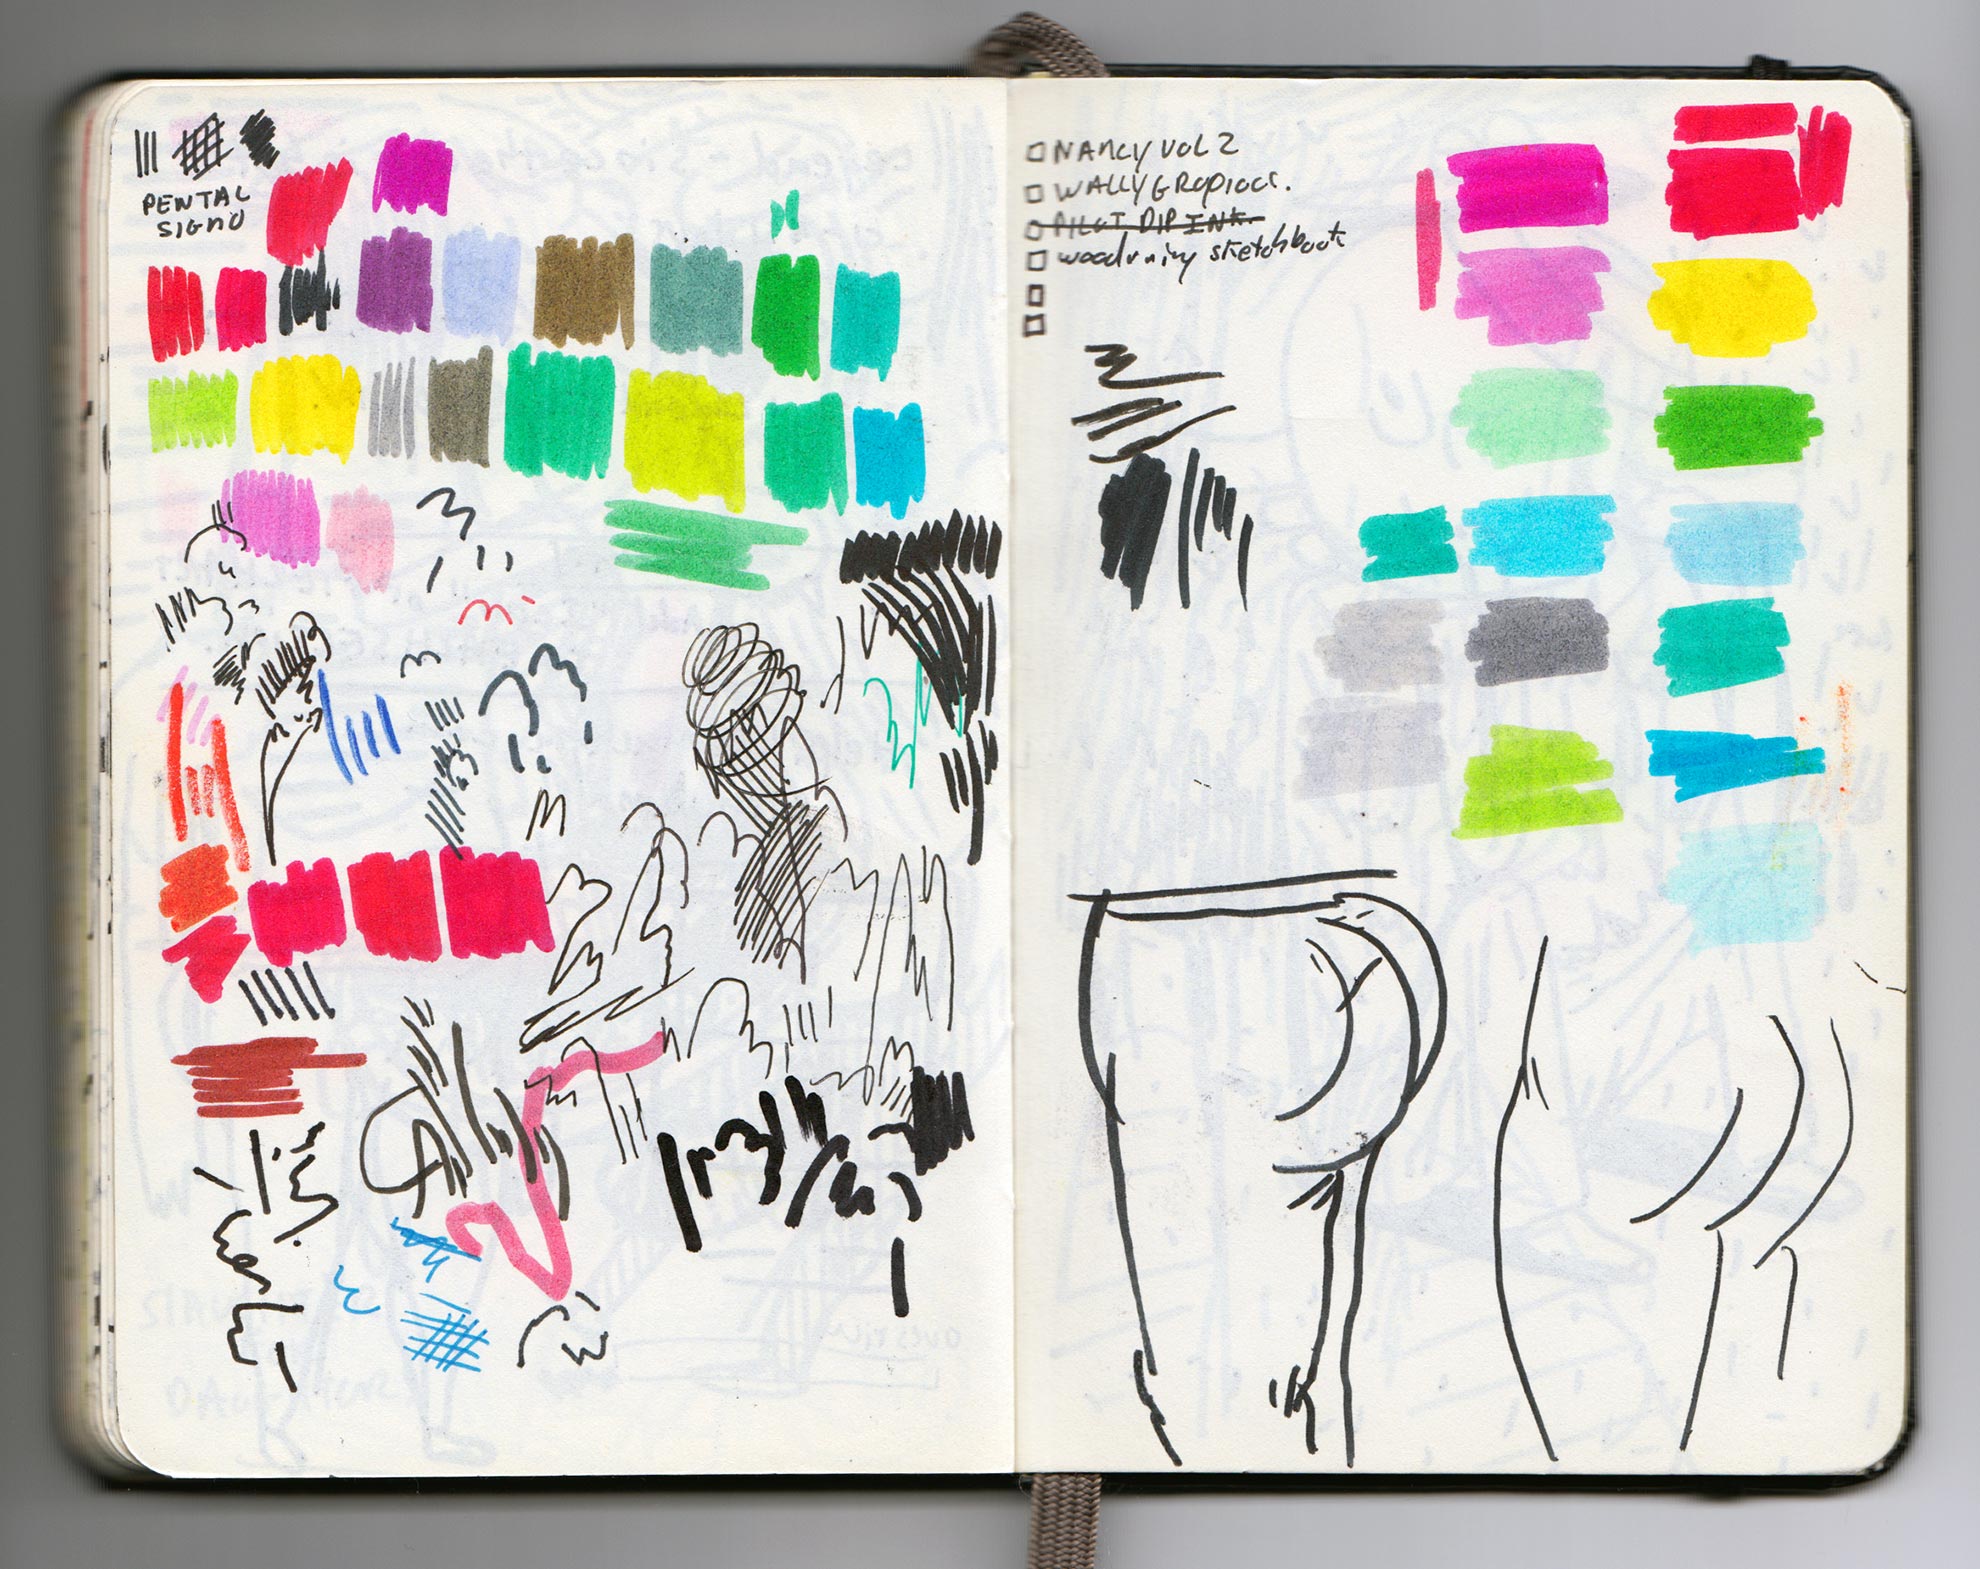 PENTAL
SIGNO
NANCY VOL 2
WALLY GROPIUS.
PILOT DIP INK.
sketchbook